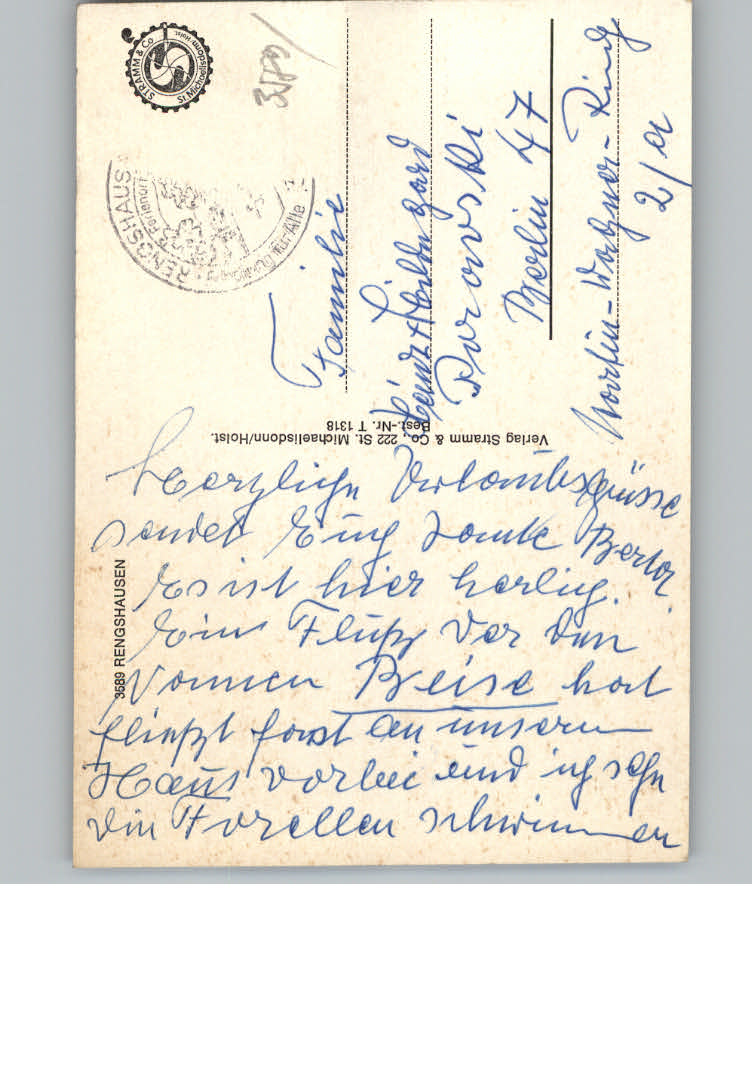 Herzliche Urlaubsgrüsse
sendet Euch Tante Berta.
Es ist hier herlich.
Ein Fluß der den
Namen Beise hat
fließt fast an unserem
Haus vorbei und ich sehe
die Forellen schwimmen
3589 RENGSHAUSEN
Verlag Stramm & Co., 222 St. Michaelisdonn/Holst.
Best.-Nr. T 1318
STRAMM & Co
St. Michaelisdonn-Holst.
RENGSHAUSEN
Ferienort
für Alle
Familie
Heinz + Hildegard
Porowski
Berlin 47
Martin-Wagner-Ring
2/a